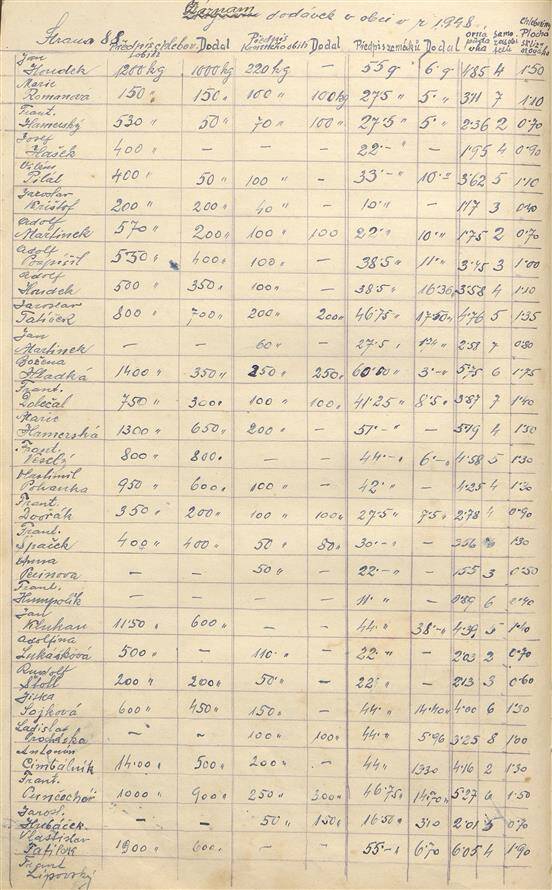 Záznam dodávek v obci v r. 1948.
Strana 88. Předpis chlebov. obilí Dodal Předpis krmného obilí Dodal Předpis zemáků Dodal orná půda Samozásobitelů Plocha
Jan Houdek 1200 kg 1000 kg 220 kg — 55 q 6 q 4'85 4 1'50
Marie Romanová 150 " 150 " 100 " 100 kg 27'5 " 5 " 3'41 7 1'10
Frant. Hamerský 530 " 50 " 70 " 100 " 27'5 " 5 " 2'36 2 0'70
Josef Hašek 400 " — — — 22 '— " — 1'95 4 0'90
Vilém Pilát 400 " 50 " 100 " — 33 '— " 10 '— " 3'62 5 1'10
Jaroslav Krištof 200 " 200 " 40 " — 10 '— " — 1'17 3 0'40
Adolf Martinek 570 " 200 " 100 " 100 22 '— " 10 " 1'75 2 0'70
Adolf Pospíšil 550 " 400 " 100 " — 38'5 " 11 " 3'45 3 1'00
Adolf Houdek 500 " 350 " 100 " — 38'5 " 16'36 " 3'58 4 1'10
Jaroslav Tatíček 800 " 700 " 200 " 200 " 46'75 " 17'50 " 4'76 5 1'35
Jan Martinek — — 60 " — 27'5 " 2'58 7 0'80
Božena Hladká 1400 " 350 " 250 " 250 " 60'00 " 3 '— " 5'75 6 1'75
Frant. Doležal 750 " 300 " 100 " 100 " 41'25 " 8'5 " 3'87 7 1'40
Marie Hamerská 1300 " 650 " 200 " — 51 '— " — 5'19 4 1'30
Frant. Veselý 800 " 800 " — — 44 '— " 6 '— " 4'58 5 1'30
Vlastimil 950 " 600 " 100 " — 42 '— " — 4'25 4 1'30
Frant. Dvořák 350 " 200 " 100 " 100 " 27'5 " 7'5 " 2'78 4 0'90
Frant. Špaček 400 " 400 " 50 " 80 " 30 '— " — 3'56 1'30
Anna — — 50 " — 22 '— " — 1'55 3 0'50
Frant. Humpolík — — — — 11 " — 0'89 6 0'40
Jan Kluhan 1150 " 600 " — — 44 " 38 '— " 4'39 5 1'40
Adolfina Lukášková 500 " — 110 '— " — 22 '— " — 2'03 2 0'70
Rudolf Štoll 200 " 200 " 50 " — 22 '— " — 2'13 3 0'60
Jitka Sojková 600 " 450 " 150 " — 44 " 14'40 " 4'00 6 1'30
Ladislav Procházka — — 100 " 100 " 44 '— " 5'96 3'25 8 1'00
Antonín Cimbálník 1400 " 500 " 200 " — 44 " 13'30 4'16 2 1'30
Frant. Punčochář 1000 " 900 " 250 " 300 " 46'75 " 14'70 " 5'27 6 1'50
Jarosl. Hubáček — — 50 " 150 " 16'50 " 3'10 2'01 3 0'70
Vlastislav 1900 " 600 " — — 55 '— " 6'70 6'05 4 1'90
Frant. Lipovský